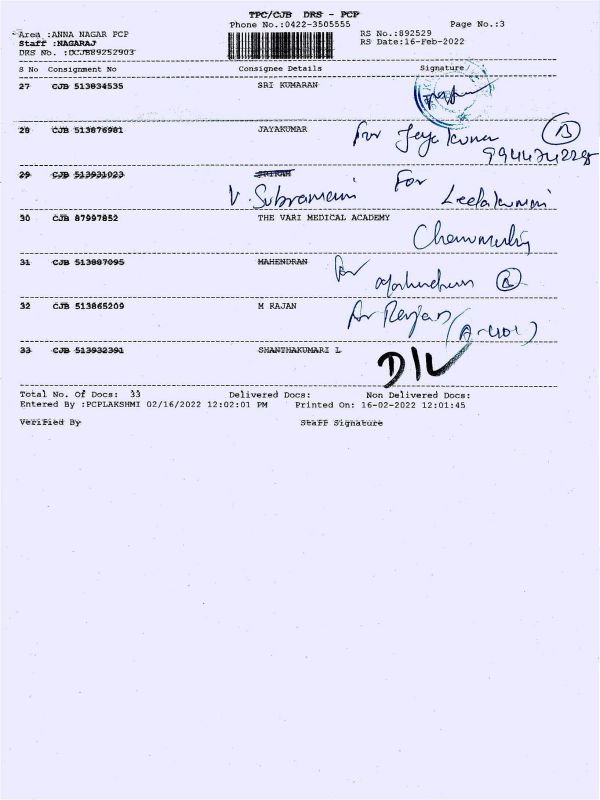 TPC/CJB DRS - PCP
Phone No.:0422-3505555
Page No.:3
Area :ANNA NAGAR PCP
RS No.:892529
Staff :NAGARAJ
RS Date:16-Feb-2022
DRS No. :DCJB89252903
S No Consignment No Consignee Details Signature
27 CJB 513834535 SRI KUMARAN
28 CJB 513876981 JAYAKUMAR
For Jaya kumar B
9944742298
29 CJB 513931023
V. Subramani For Leelakumari
30 CJB 87997852 THE VARI MEDICAL ACADEMY
31 CJB 513887095 MAHENDRAN
For
32 CJB 513865209 M RAJAN
For Rajan
33 CJB 513932391 SHANTHAKUMARI L
D/L
Total No. Of Docs: 33 Delivered Docs: Non Delivered Docs:
Entered By :PCPLAKSHMI 02/16/2022 12:02:01 PM Printed On: 16-02-2022 12:01:45
Verified By Staff Signature